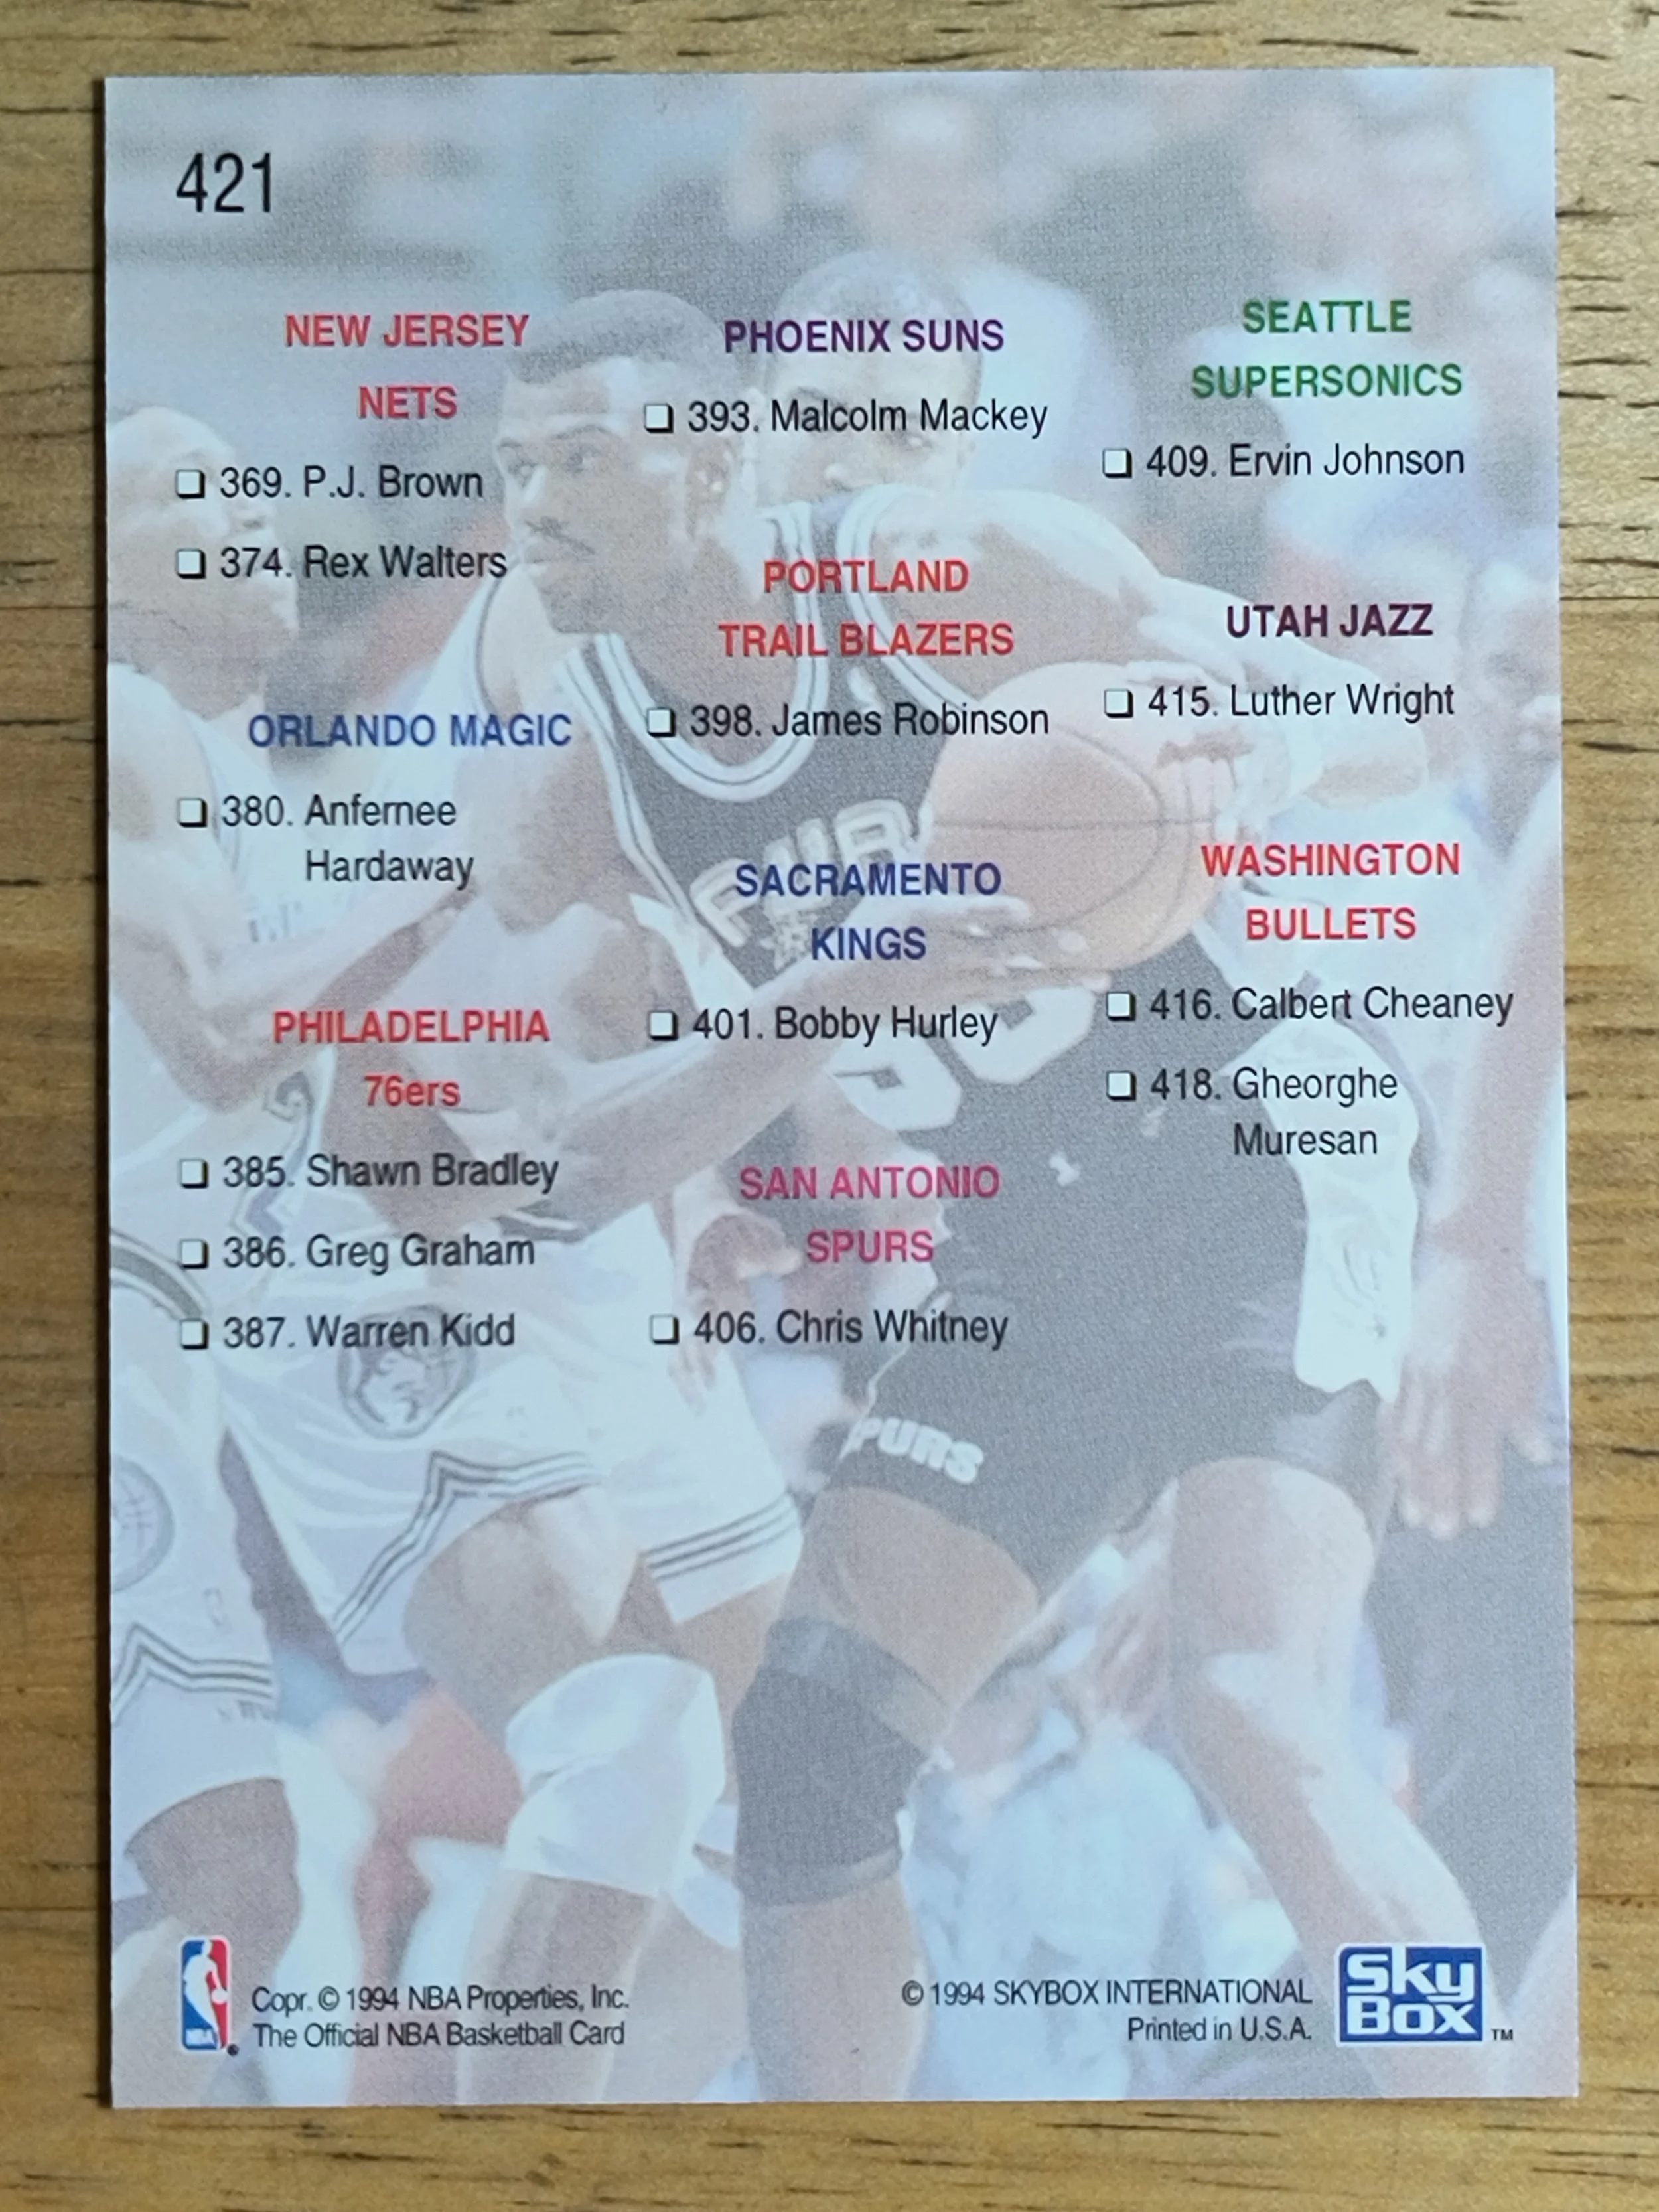 421
NEW JERSEY
NETS
❏ 369. P.J. Brown
❏ 374. Rex Walters
ORLANDO MAGIC
❏ 380. Anfernee
Hardaway
PHILADELPHIA
76ers
❏ 385. Shawn Bradley
❏ 386. Greg Graham
❏ 387. Warren Kidd
PHOENIX SUNS
❏ 393. Malcolm Mackey
PORTLAND
TRAIL BLAZERS
❏ 398. James Robinson
SACRAMENTO
KINGS
❏ 401. Bobby Hurley
SAN ANTONIO
SPURS
❏ 406. Chris Whitney
SEATTLE
SUPERSONICS
❏ 409. Ervin Johnson
UTAH JAZZ
❏ 415. Luther Wright
WASHINGTON
BULLETS
❏ 416. Calbert Cheaney
❏ 418. Gheorghe
Muresan
PURS
NBA
Copr. © 1994 NBA Properties, Inc.
The Official NBA Basketball Card
© 1994 SKYBOX INTERNATIONAL
Printed in U.S.A.
Sky
Box TM